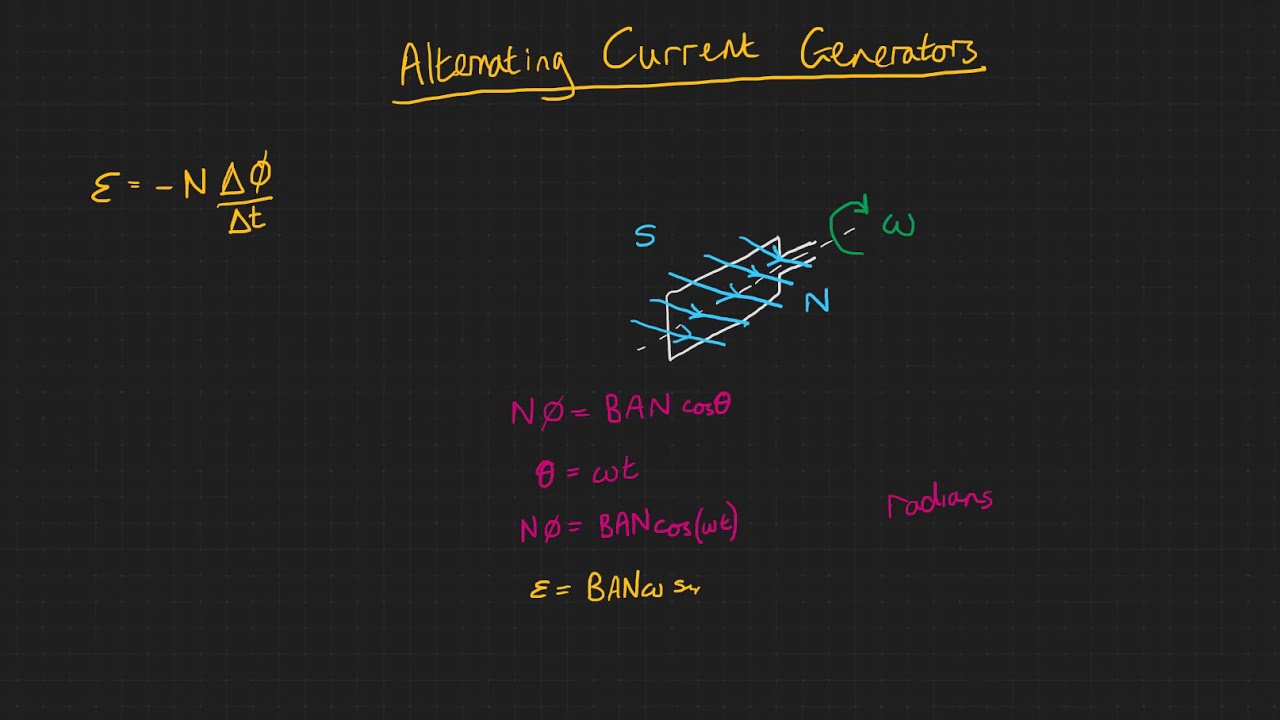 Alternating Current Generators
ε = - N Δϕ/Δt
S
ω
N
Nϕ = BAN cosθ
θ = ωt
radians
Nϕ = BAN cos(ωt)
ε = BANω